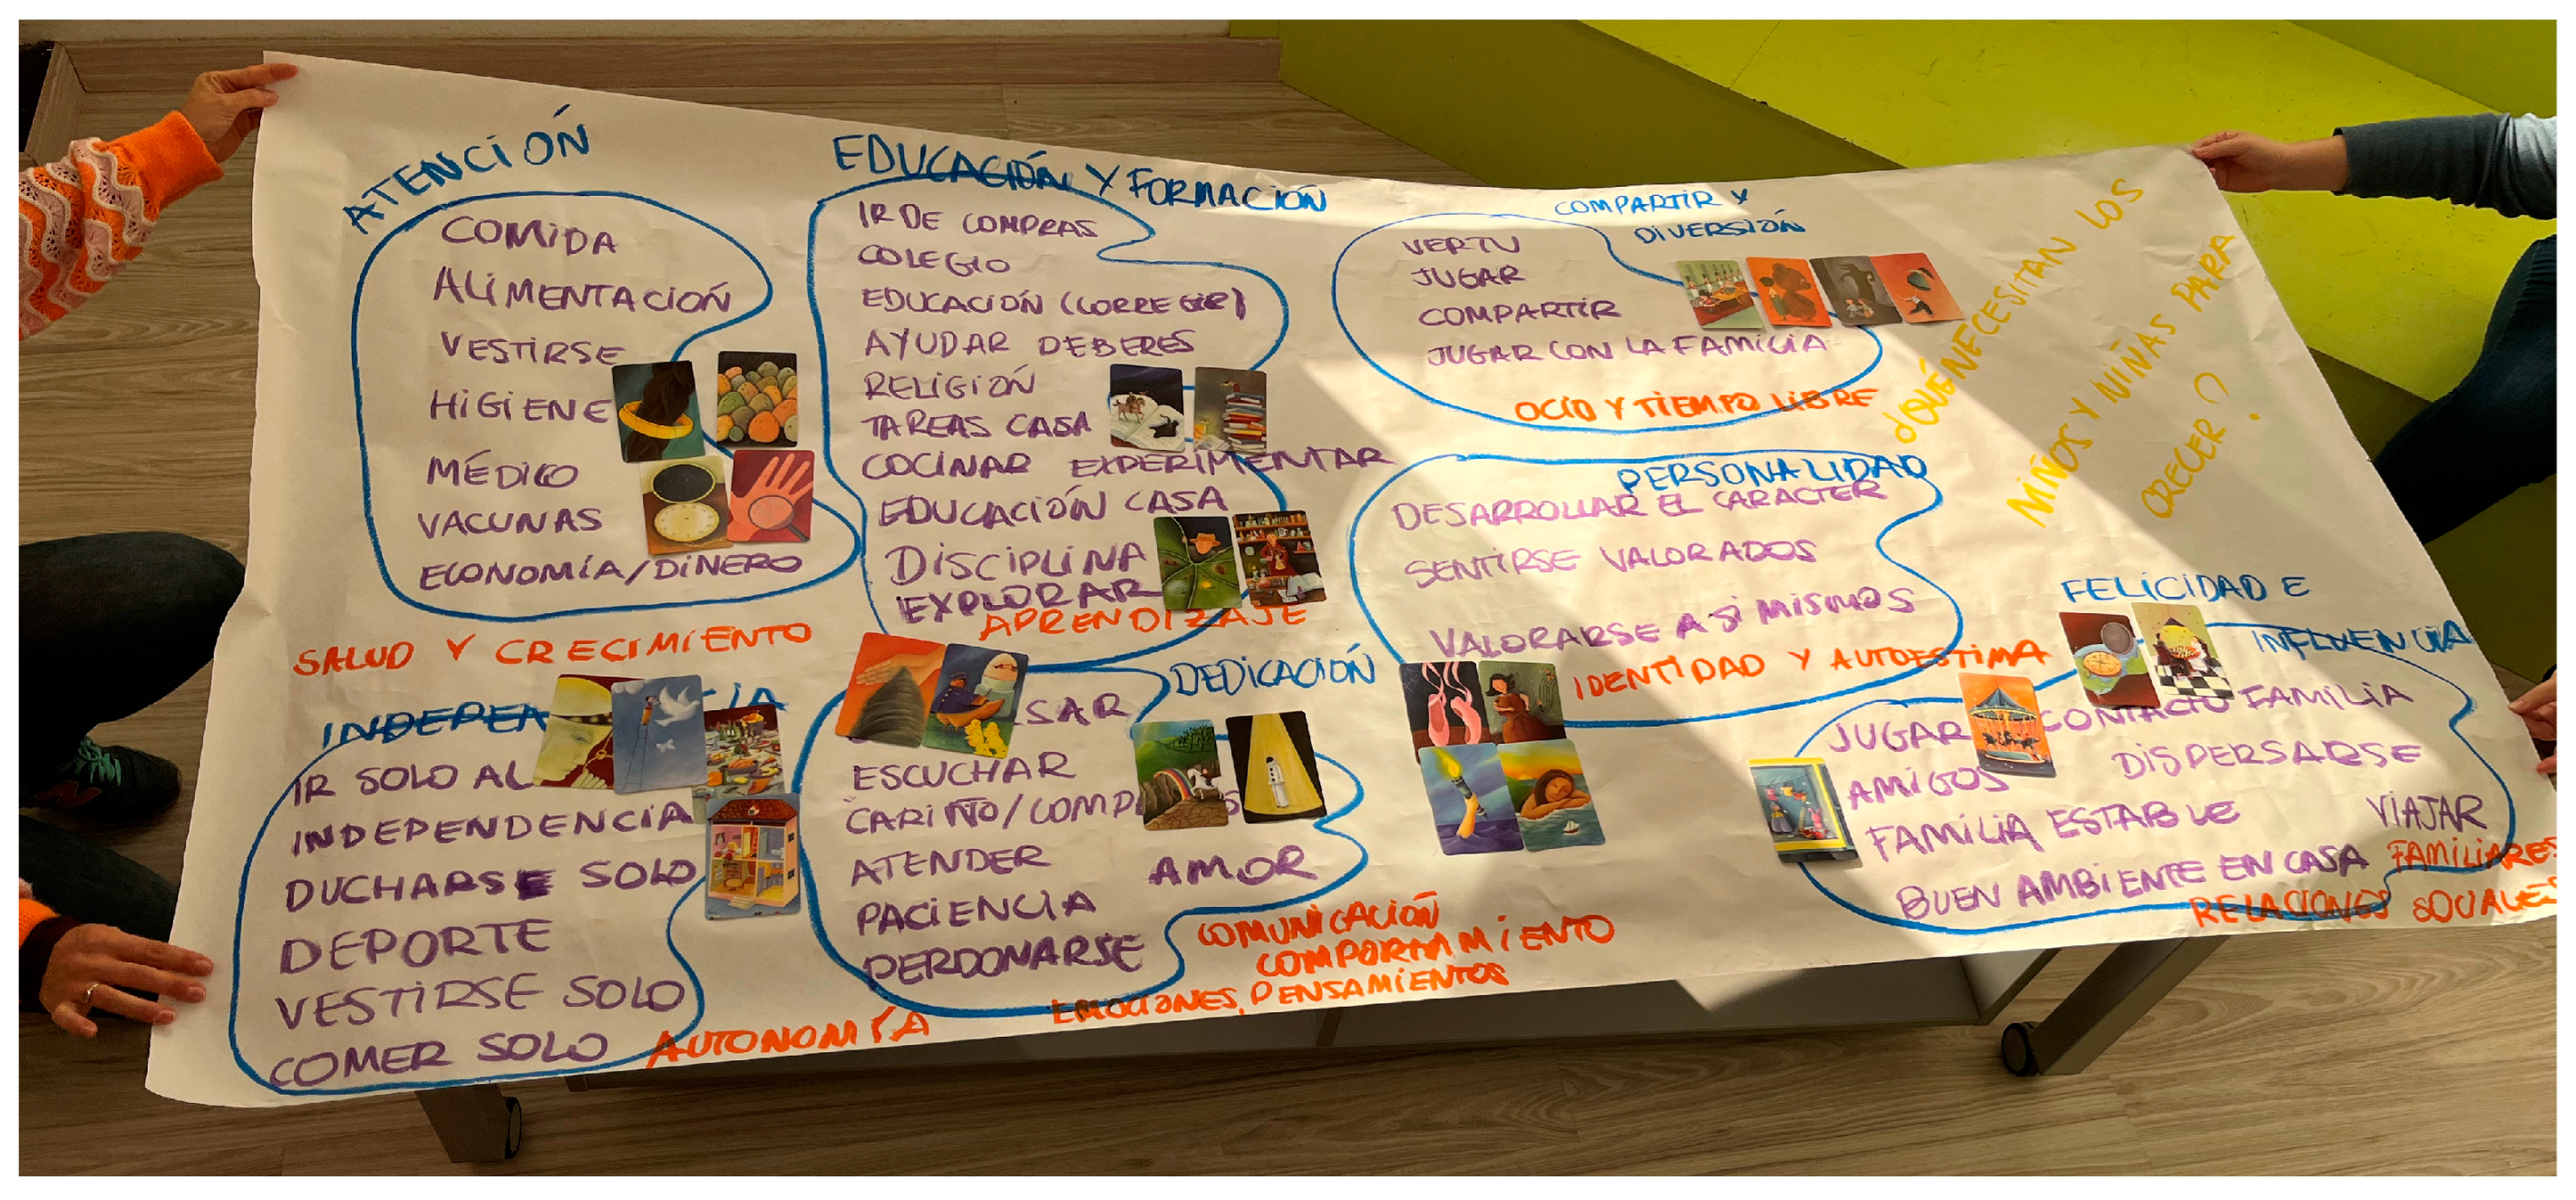 ATENCIÓN
COMIDA
ALIMENTACIÓN
VESTIRSE
HIGIENE
MÉDICO
VACUNAS
ECONOMÍA/DINERO
SALUD Y CRECIMIENTO
EDUCACIÓN Y FORMACIÓN
IR DE COMPRAS
COLEGIO
EDUCACIÓN (CORREGIR)
AYUDAR DEBERES
RELIGIÓN
TAREAS CASA
COCINAR EXPERIMENTAR
EDUCACIÓN CASA
DISCIPLINA
EXPLORAR
APRENDIZAJE
COMPARTIR Y
DIVERSIÓN
VER TV
JUGAR
COMPARTIR
JUGAR CON LA FAMILIA
OCIO Y TIEMPO LIBRE
¿QUÉ NECESITAN LOS
NIÑOS Y NIÑAS PARA
CRECER?
PERSONALIDAD
DESARROLLAR EL CARACTER
SENTIRSE VALORADOS
VALORARSE A SÍ MISMOS
IDENTIDAD Y AUTOESTIMA
IR SOLO AL
INDEPENDENCIA
DUCHARSE SOLO
DEPORTE
VESTIRSE SOLO
COMER SOLO
AUTONOMÍA
DEDICACIÓN
ESCUCHAR
CARIÑO/
ATENDER
AMOR
PACIENCIA
PERDONARSE
COMUNICACIÓN
COMPORTAMIENTO
EMOCIONES, PENSAMIENTOS
FELICIDAD E
INFLUENCIA
JUGAR CONTACTO FAMILIA
AMIGOS DISPERSARSE
FAMILIA ESTABLE VIAJAR
BUEN AMBIENTE EN CASA FAMILIARES
RELACIONES SOCIALES